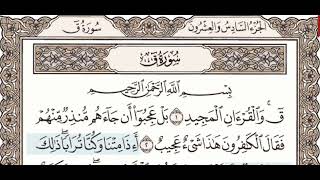 سُورَةُ قٓ الجُزْءُ السَّادِسُ وَالعِشْرُونَ
سُورَةُ قٓ
بِسْمِ ٱللَّهِ ٱلرَّحْمَٰنِ ٱلرَّحِيمِ
قٓ ۚ وَٱلْقُرْءَانِ ٱلْمَجِيدِ ١ بَلْ عَجِبُوٓا۟ أَن جَآءَهُم مُّنذِرٌ مِّنْهُمْ
فَقَالَ ٱلْكَٰفِرُونَ هَٰذَا شَىْءٌ عَجِيبٌ ٢ أَءِذَا مِتْنَا وَكُنَّا تُرَابًا ۖ ذَٰلِكَ